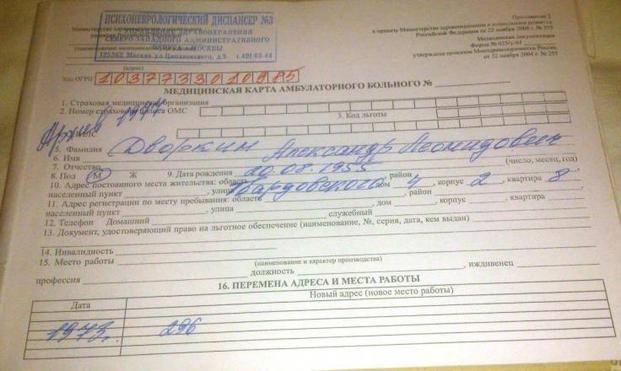 ПСИХОНЕВРОЛОГИЧЕСКИЙ ДИСПАНСЕР №3
УПРАВЛЕНИЯ ЗДРАВООХРАНЕНИЯ
СЕВЕРО-ЗАПАДНОГО АДМИНИСТРАТИВНОГО
ОКРУГА г. МОСКВЫ
Приложение 2
к приказу Министерства здравоохранения и социального развития
Российской Федерации от 22 ноября 2004 г. № 255
Медицинская документация
Форма № 025/у-04
утверждена приказом Минздравсоцразвития России
от 22 ноября 2004 г. № 255
Код ОГРН 1037733010985
МЕДИЦИНСКАЯ КАРТА АМБУЛАТОРНОГО БОЛЬНОГО №
1. Страховая медицинская организация
2. Номер страхового полиса ОМС 3. Код льготы
Архив
5. Фамилия Дворкин Александр Леонидович
6. Имя
7. Отчество (число, месяц, год)
8. Пол М Ж 9. Дата рождения 20.08.1955
10. Адрес постоянного места жительства: область район
населенный пункт , улица Твардовского дом 4 , корпус 2 , квартира 8
11. Адрес регистрации по месту пребывания: область , район
населенный пункт , улица дом , корпус , квартира
12. Телефон Домашний служебный
13. Документ, удостоверяющий право на льготное обеспечение (наименование, №, серия, дата, кем выдан)
14. Инвалидность
15. Место работы
(наименование и характер производства)
профессия должность , иждивенец
16. ПЕРЕМЕНА АДРЕСА И МЕСТА РАБОТЫ
Дата Новый адрес (новое место работы)
1973г. 296